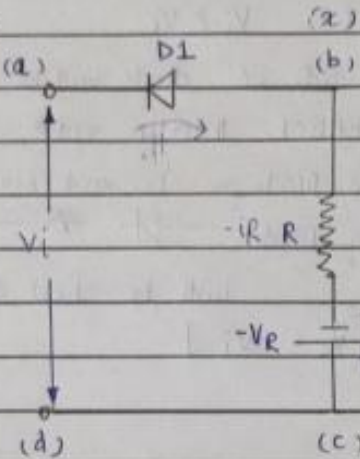 (x)
D1
(a) (b)
Vi
-iR R
-VR
(d) (c)